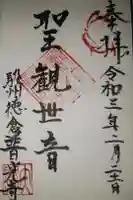 奉拝 令和三年二月二十六日
聖観世音
駿州徳倉普光寺